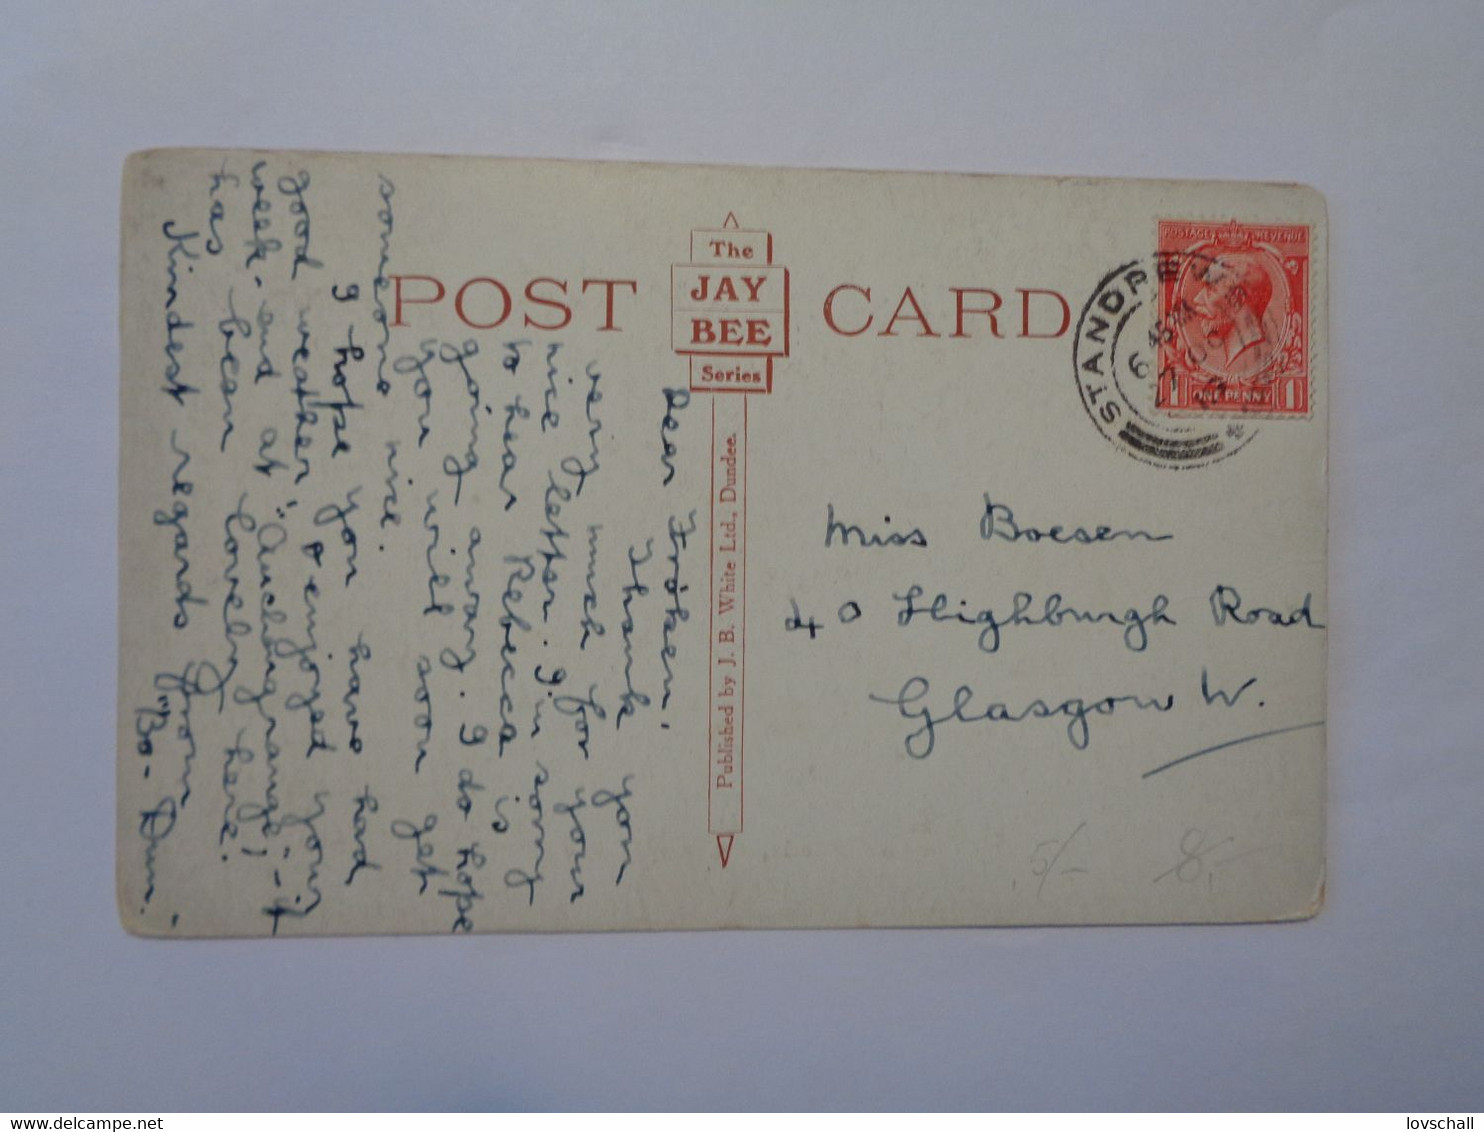 POST CARD
The
JAY
BEE
Series
Published by J. B. White Ltd., Dundee.
POSTAGE REVENUE
1 ONE PENNY 1
ST ANDREWS
Dear Fröken,
Thank you
very much for your
nice letter. I'm sorry
to hear Rebecca is
going away. I do hope
you will soon get
someone nice.
I hope you have had
good weather & enjoyed your
week-end at "Auchingrange", - it
has been lovely here.
Kindest regards from
"Bo-Dum".
Miss Boesen
40 Highburgh Road
Glasgow W.
5/- 8.-
lovschall